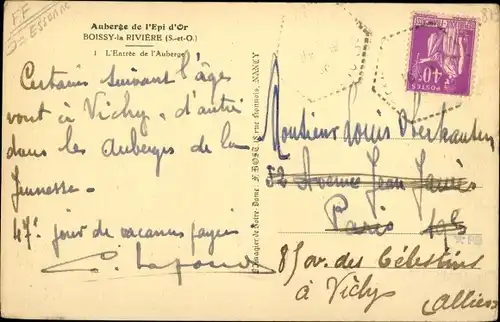 FF
Auberge de l'Epi d'Or
BOISSY-la RIVIÈRE (S.-et-O.)
1 L'Entrée de l'Auberge
Certains suivant l'âge
vont à Vichy, d'autres
dans les Auberges de la
Jeunesse.
47e jour de vacances payées
POSTES
40c
Monsieur Louis
52 Avenue Jean Jaurès
Paris
8 av. des Célestins
à Vichy
(Allier)